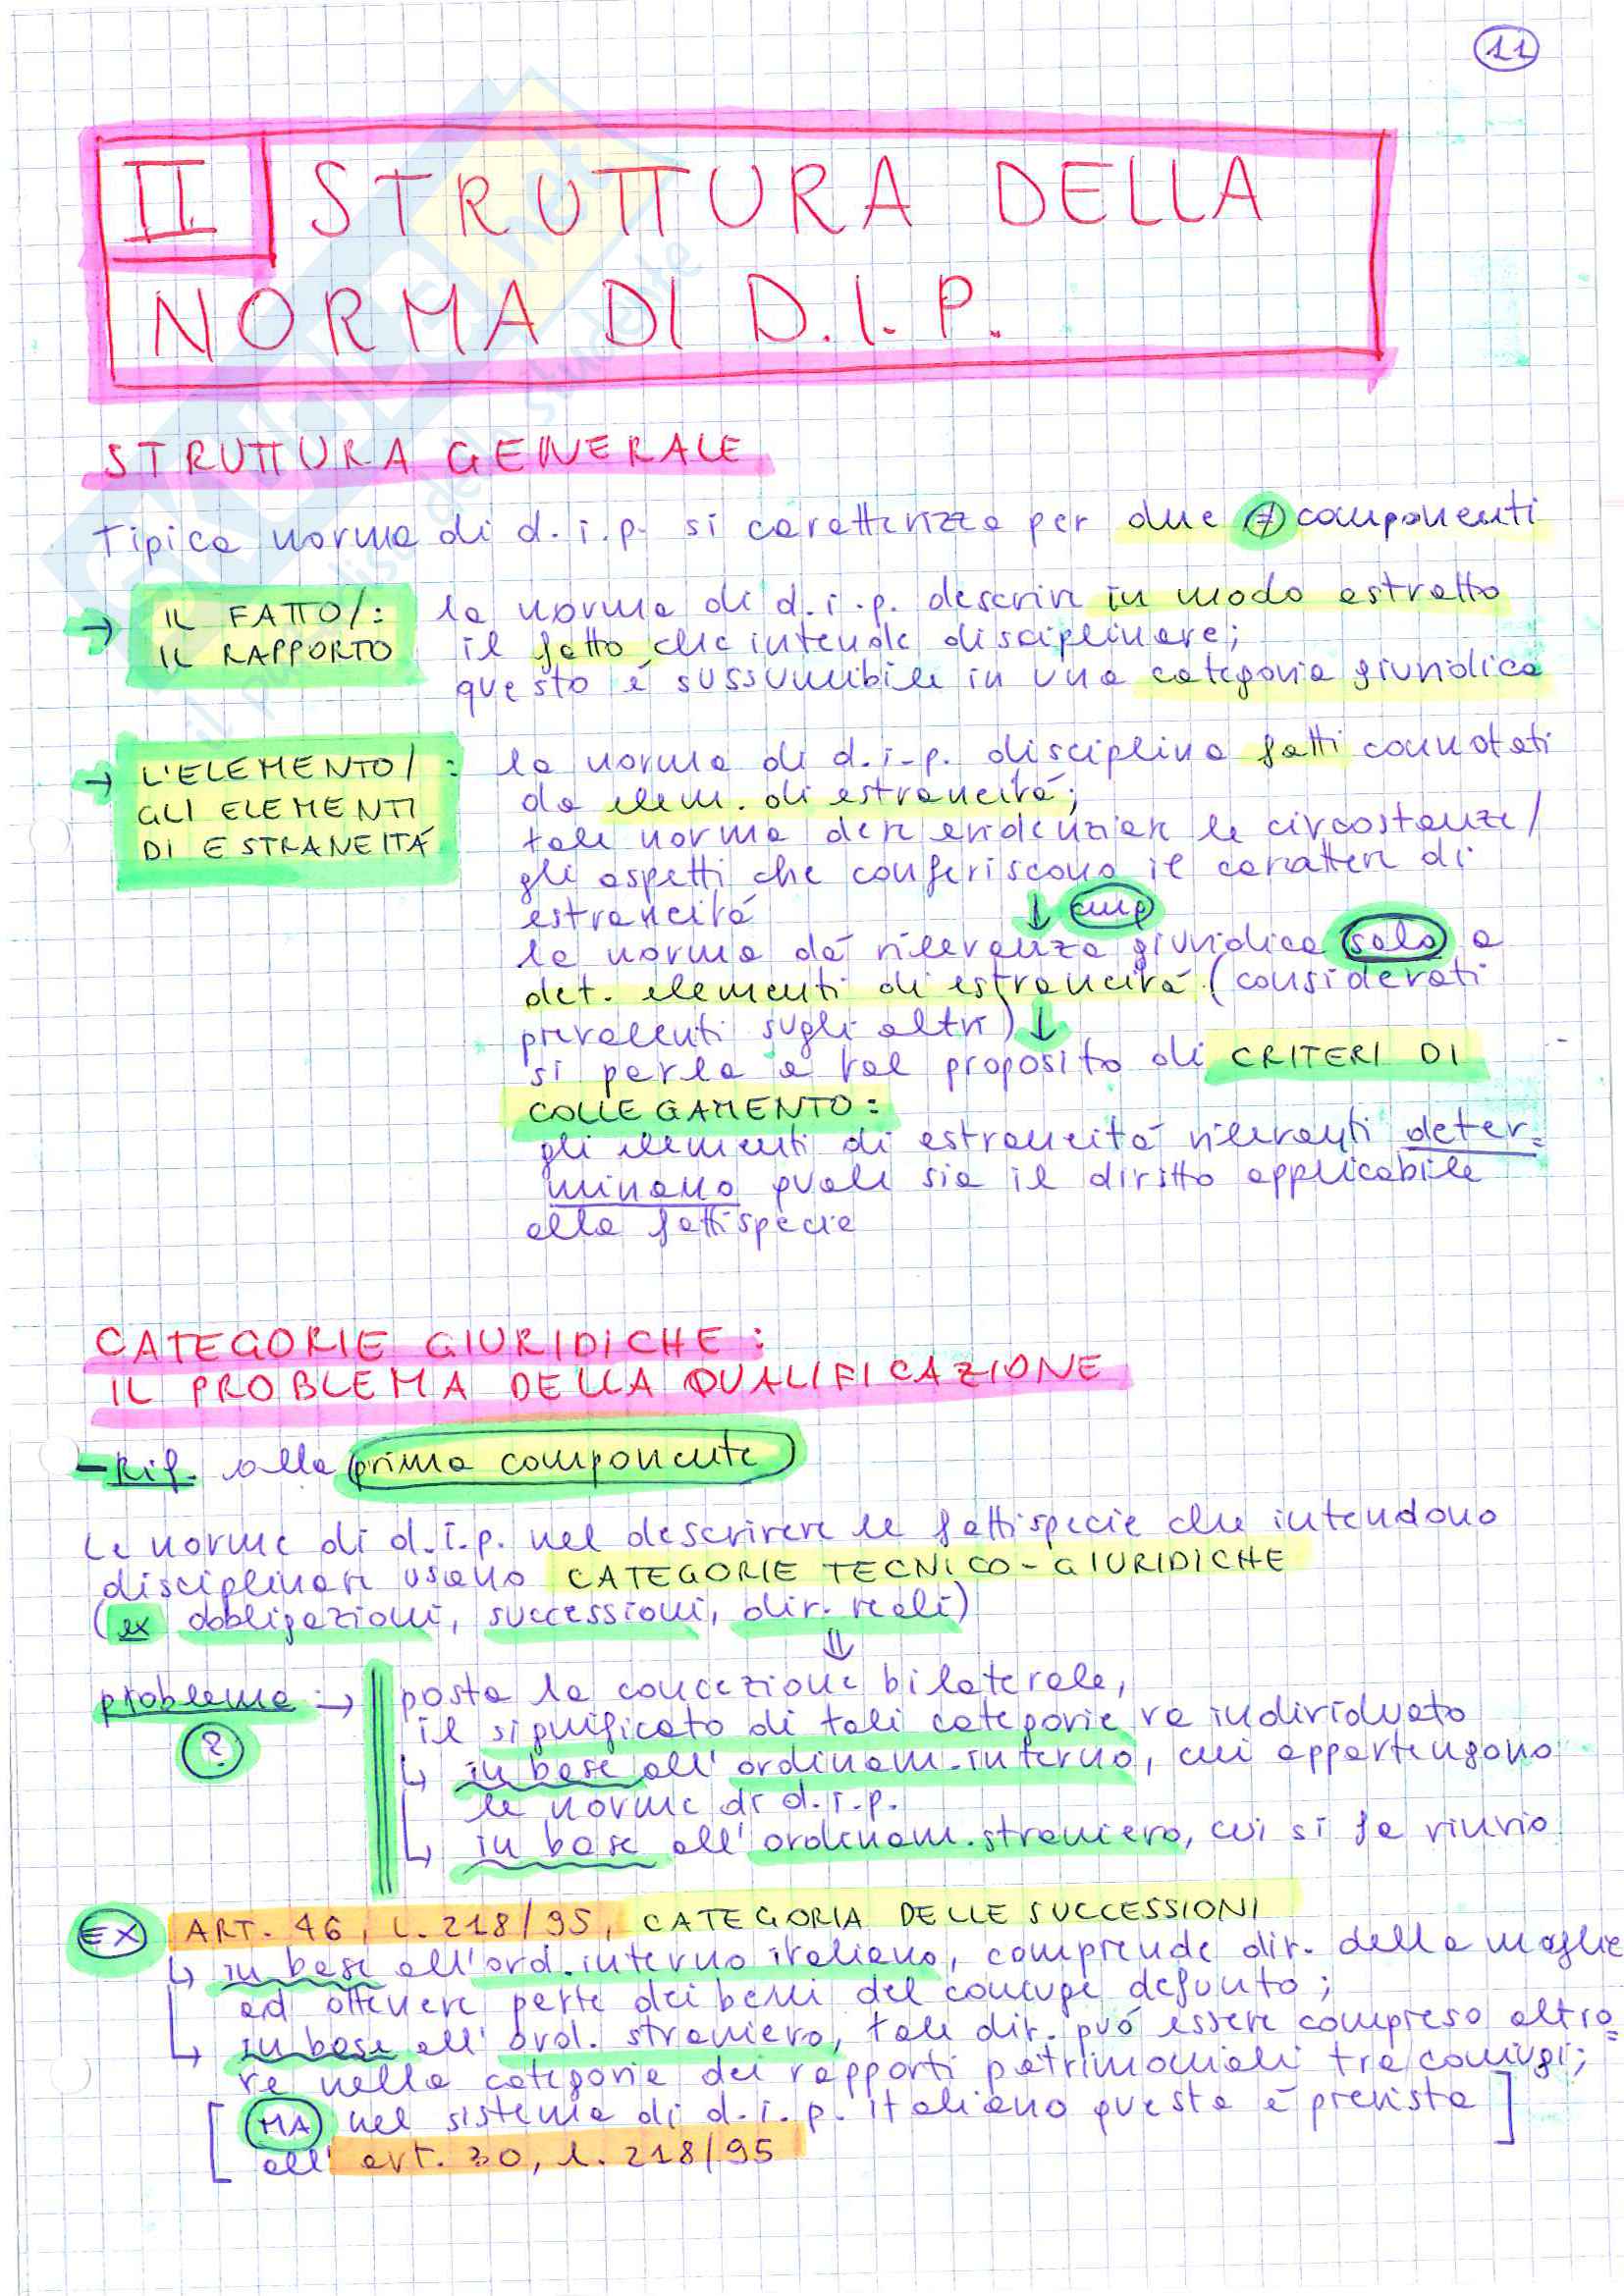 11
II. STRUTTURA DELLA
NORMA DI D.I.P.
STRUTTURA GENERALE
Tipica norma di d.i.p. si caratterizza per due ≠ componenti
→ IL FATTO/: la norma di d.i.p. descrive in modo estratto
IL RAPPORTO il fatto che intende disciplinare;
questo é sussumibile in una categoria giuridica
→ L'ELEMENTO/ : la norma di d.i.p. disciplina fatti connotati
GLI ELEMENTI da elem. di estraneitá;
DI ESTRANEITÁ tale norma deve evidenziare le circostanze/
gli aspetti che conferiscono il carattere di
estraneitá ↓ cmq
la norma dá rilevanza giuridica solo a
det. elementi di estraneitá (considerati
prevalenti sugli altri) ↓
si parla a tal proposito di CRITERI DI
COLLEGAMENTO:
gli elementi di estraneitá rilevanti deter=
minano quale sia il diritto applicabile
alla fattispecie
CATEGORIE GIURIDICHE:
IL PROBLEMA DELLA QUALIFICAZIONE
- Rif. alla prima componente
Le norme di d.i.p. nel descrivere le fattispecie che intendono
disciplinare usano CATEGORIE TECNICO-GIURIDICHE
(ex obbligazioni, successioni, dir. reali)
⇓
problema :→ posta la concezione bilaterale,
? il significato di tali categorie va individuato
↳ in base all'ordinam. interno, cui appartengono
le norme di d.i.p.
↳ in base all'ordinam. straniero, cui si fa rinvio
EX ART. 46, L. 218/95, CATEGORIA DELLE SUCCESSIONI
↳ in base all'ord. interno italiano, comprende dir. della moglie
ad ottenere parte dei beni del coniuge defunto;
↳ in base all'ord. straniero, tale dir. puó essere compreso altro=
ve nella categoria dei rapporti patrimoniali tra coniugi;
[MA nel sistema di d.i.p. italiano questa é prevista]
all'art. 30, l. 218/95